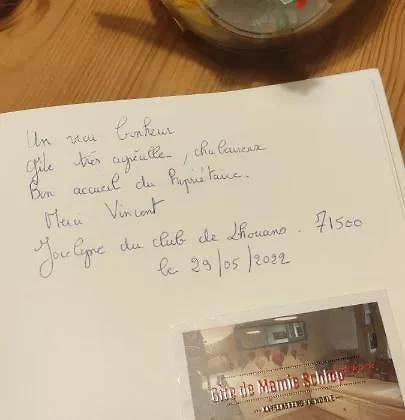 Un vrai bonheur
gîte très agréable, chaleureux
Bon accueil du Propriétaire.
Merci Vincent
Jocelyne du club de Lhouans. 71500
le 29/05/2022
Gîte de Mamie Schlop